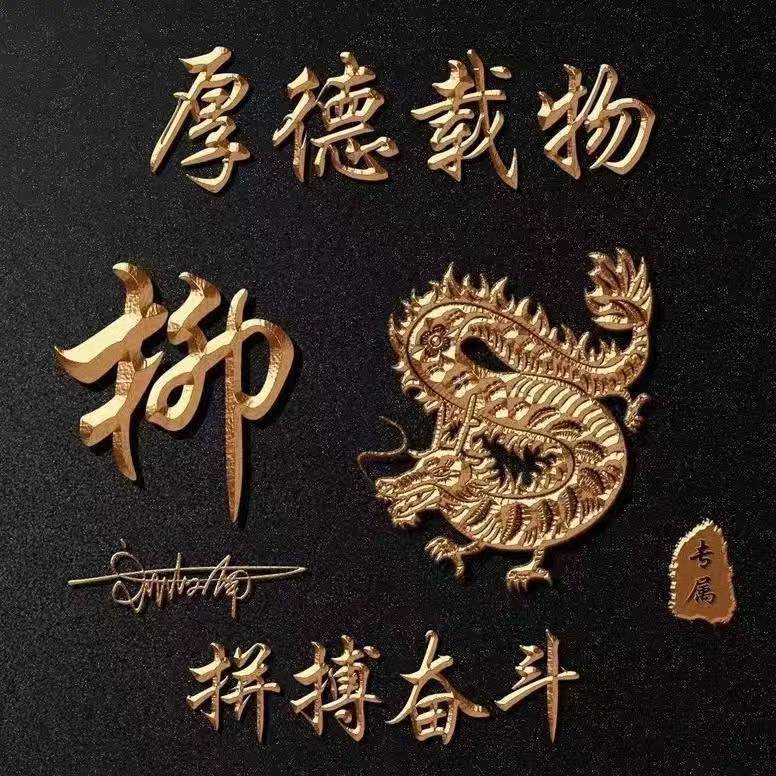 厚德载物
柳
专属
拼搏奋斗